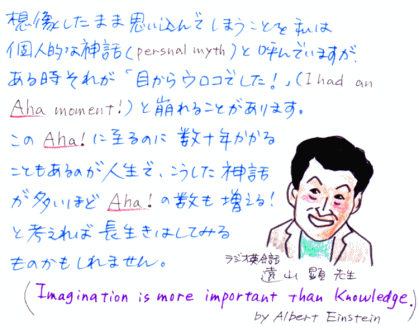 想像したまま思い込んでしまうことを私は
個人的な神話(persnal myth)と呼んでいますが、
ある時それが「目からウロコでした!」(I had an
Aha moment!)と崩れることがあります。
この Aha! に至るのに 数十年かかる
こともあるのが人生で、こうした神話
が多いほど Aha! の数も増える!
と考えれば長生きはしてみる
ものかもしれません。
ラジオ英会話
遠山 顕 先生
(Imagination is more important than Knowledge.)
by Albert Einstein